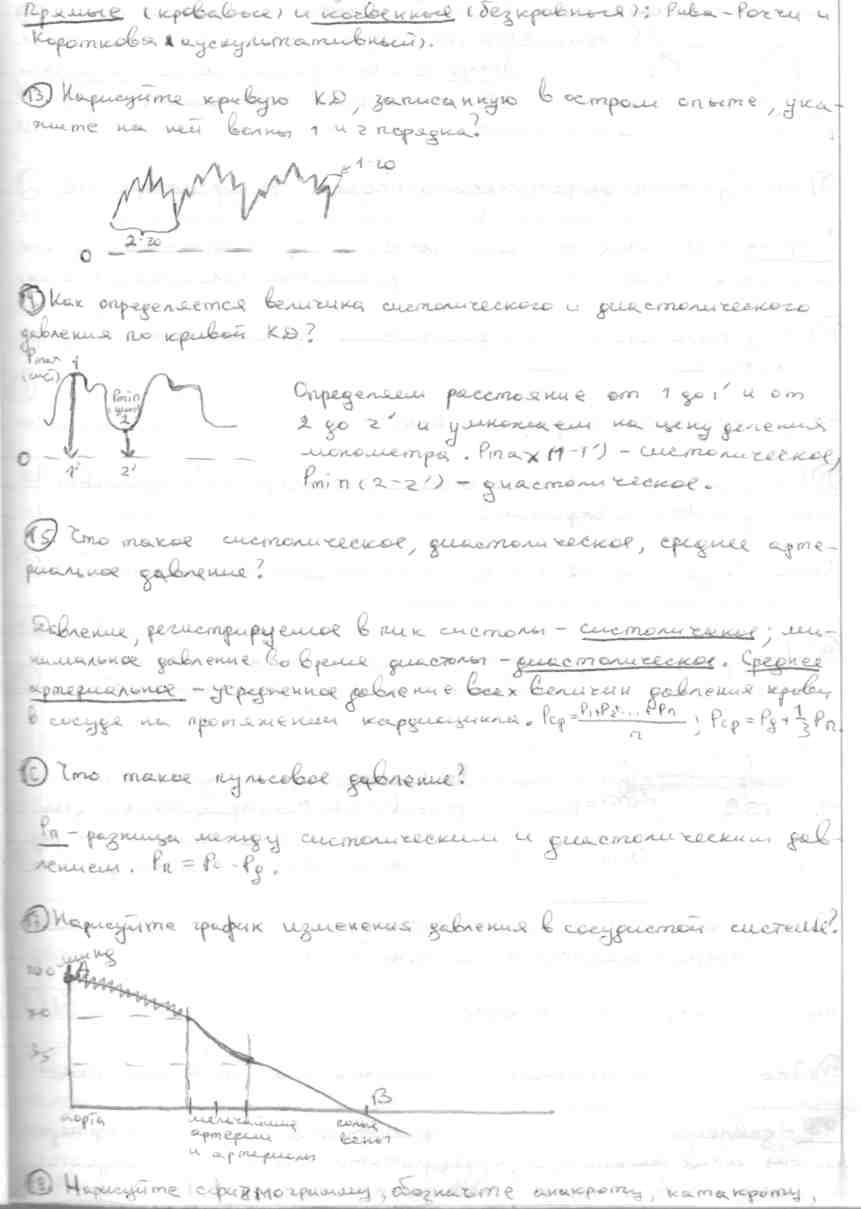 Прямые (кровавые) и косвенные (безкровные): Рива-Роччи и
Короткова (аускультативный).
13. Нарисуйте кривую КД, записанную в остром опыте, ука-
жите на ней волны 1 и 2 порядка?
1-го
2-го
0
Как определяется величина систолического и диастолического
давления по кривой КД?
Pmax
(сист)
1
Pmin
2
0
1'
2'
Определяем расстояние от 1 до 1' и от
2 до 2' и умножаем на цену деления
монометра. Pmax (1-1') - систолическое,
Pmin (2-2') - диастолическое.
15 Что такое систолическое, диастолическое, среднее арте-
риальное давление?
Давление, регистрируемое в пик систолы - систоличекое; ми-
нимальное давление во время диастолы - диастолическое. Среднее
артериальное - усредненное давление всех величин давления крови
в сосуде на протяжении кардиоцикла. Pср = P1+P2+...+Pn / n ; Pср = Pд + 1/3 Pп.
Что такое пульсовое давление?
Pп - разница между систолическим и диастолическим дав-
лением. Pп = Pс - Pд.
Нарисуйте график изменения давления в сосудистой системе?
A
70
35
B
аорта
мельчайшие
артерии
и артериолы
полые
вены
18 Нарисуйте сфигмограмму, обозначьте анакроту, катакроту,